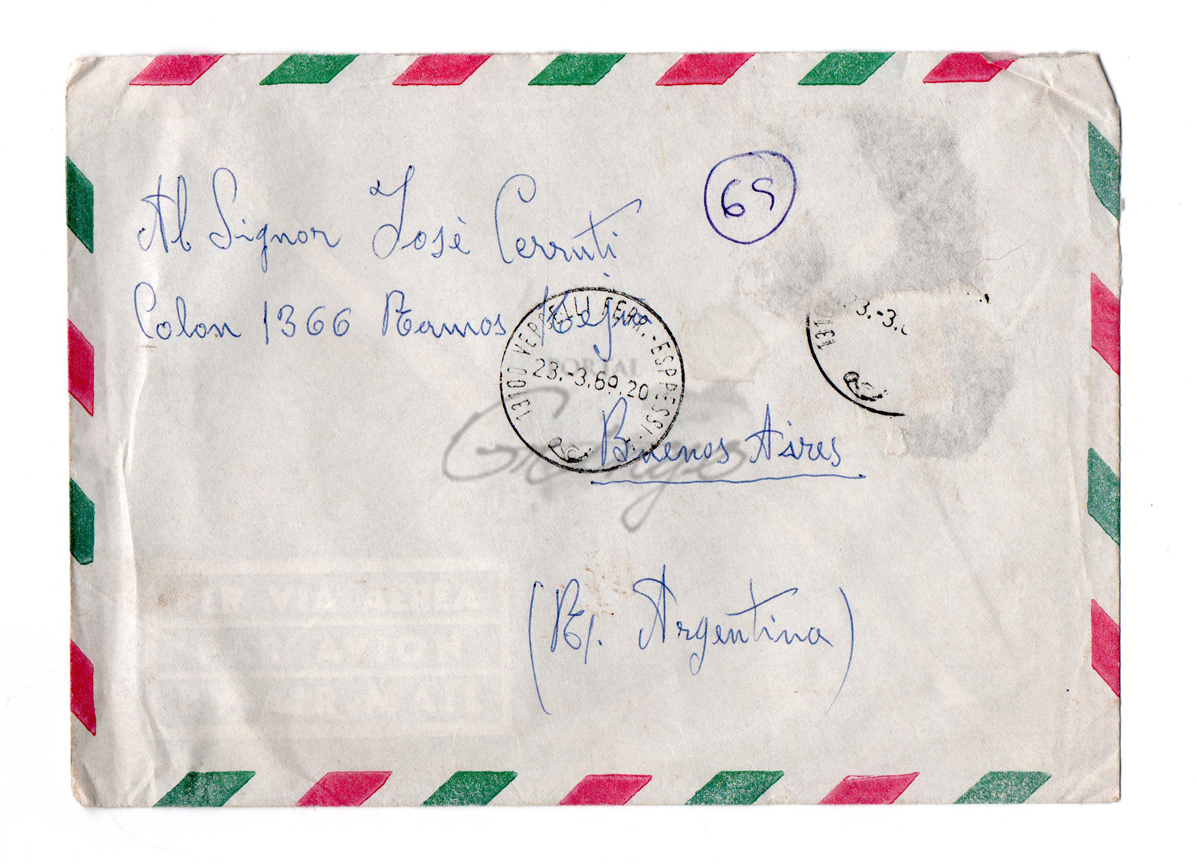 69
Al Signor Josè Cerruti
Colon 1366 Ramos Mejia
13100 VERCELLI FERR.-ESPRESSI
23.-3.69.20
Buenos Aires
(R. Argentina)
PER VIA AEREA
PAR AVION
BY AIR MAIL